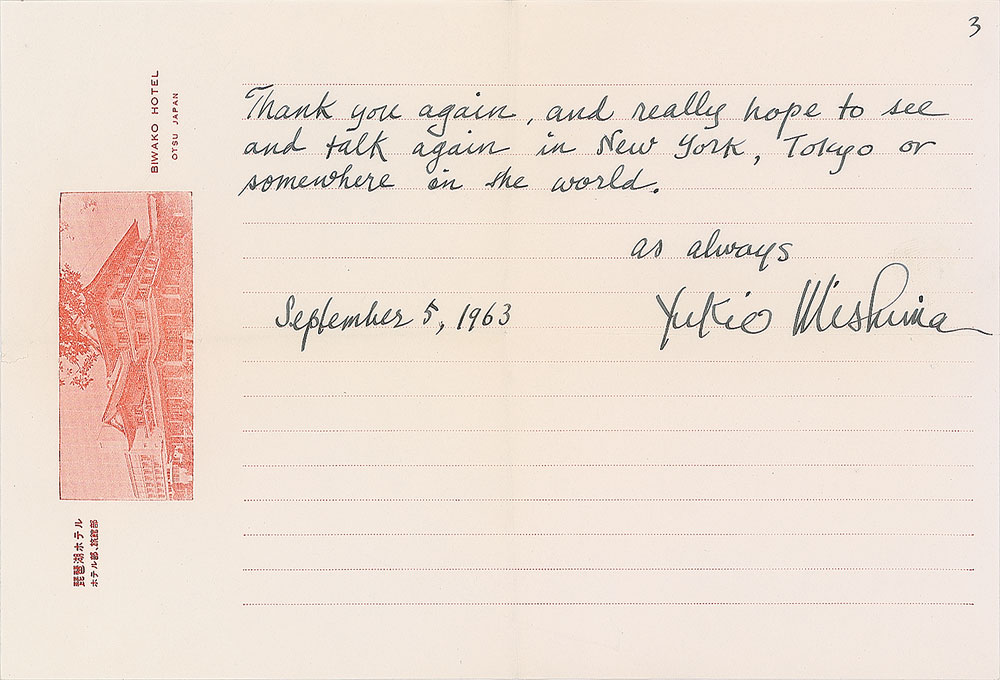 3
BIWAKO HOTEL
OTSU JAPAN
Thank you again, and really hope to see
and talk again in New York, Tokyo or
somewhere in the world.
as always
September 5, 1963
Yukio Mishima
琵琶湖ホテル
ホテル部、旅館部